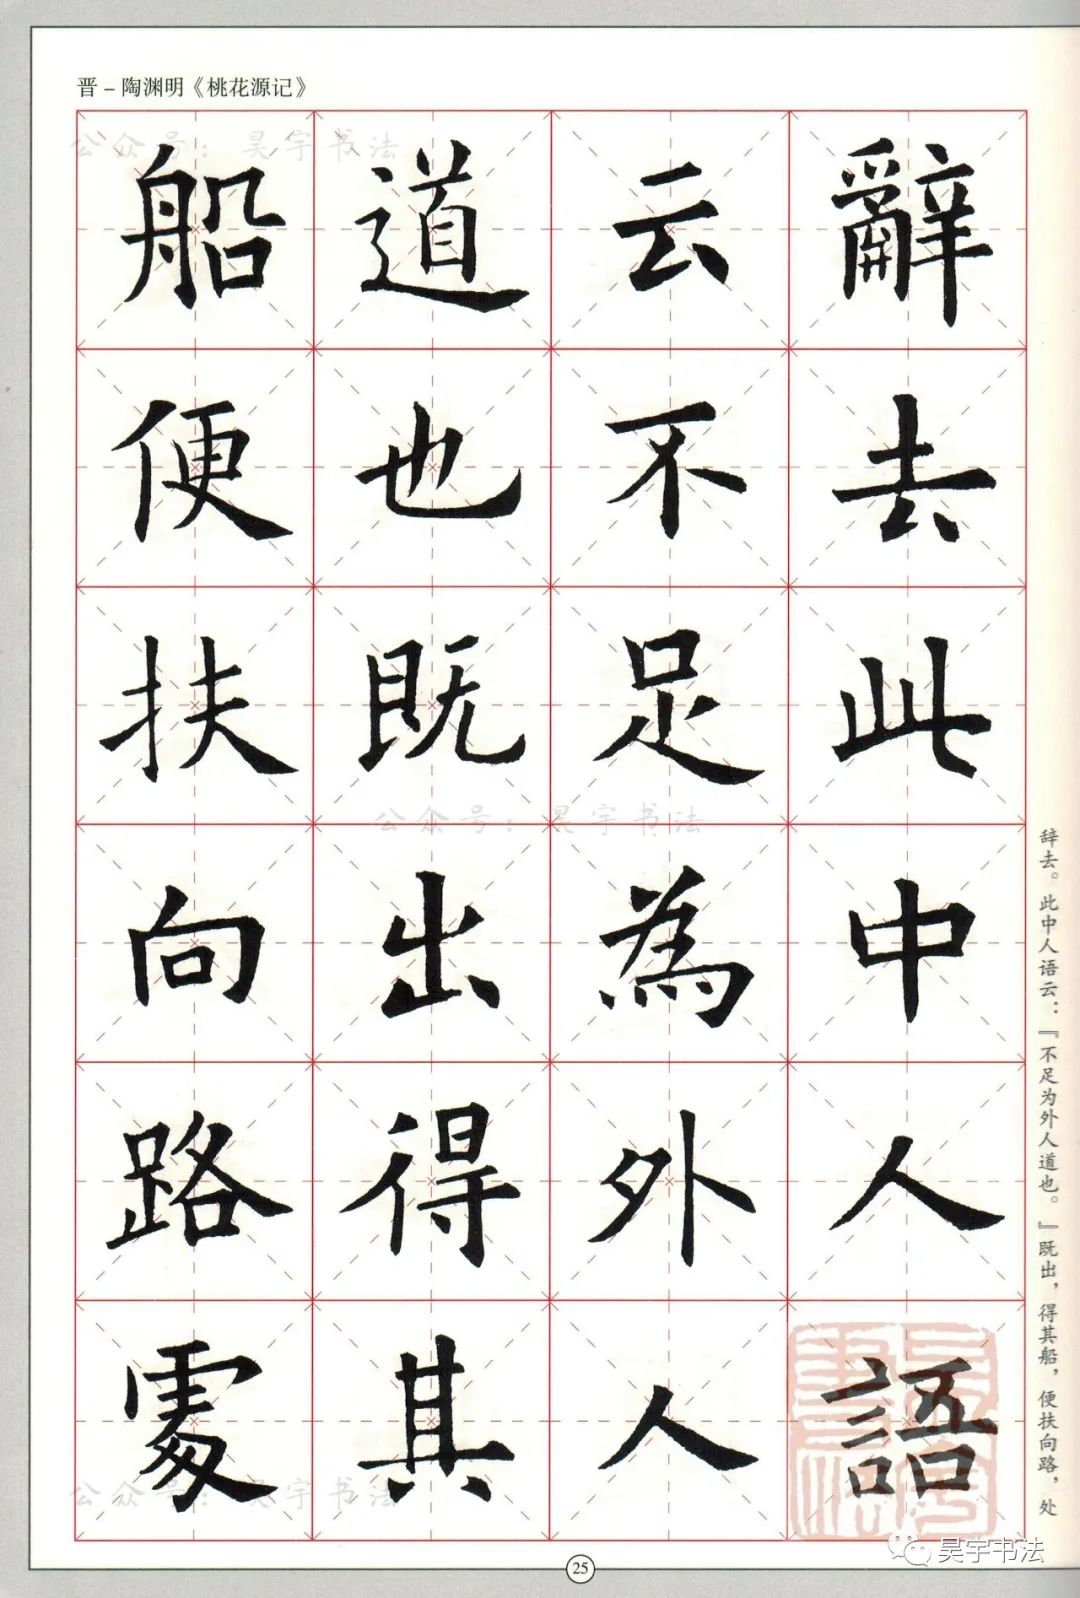 晋－陶渊明《桃花源记》
辭去此中人語
云不足為外人
道也既出得其
船便扶向路處
辞去。此中人语云：『不足为外人道也。』既出，得其船，便扶向路，处
公众号：昊宇书法
公众号：昊宇书法
公众号：昊宇书法
昊宇书法
25